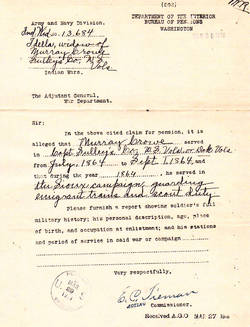 (C03)
Army and Navy Division.
DEPARTMENT OF THE INTERIOR
BUREAU OF PENSIONS
WASHINGTON
Ind Wid. 13.684
Idella, widow of
Murray Crowe
Vols
Indian Wars.
The Adjutant General,
War Department.
Sir:
In the above cited claim for pension, it is
alleged that Murray Crowe served
in Capt Co., Vols
from July, 1864 to Sept 1, 1864, and
that during the year 1864, he served in
the Sioux campaign, guarding
emigrant trains and scout duty
Please furnish a report showing soldier's full
military history; his personal description, age, place
of birth, and occupation at enlistment; and his stations
and period of service in said war or campaign
Very respectfully,
E. C. Tieman
Acting Commissioner.
Received A.G.O MAR 27